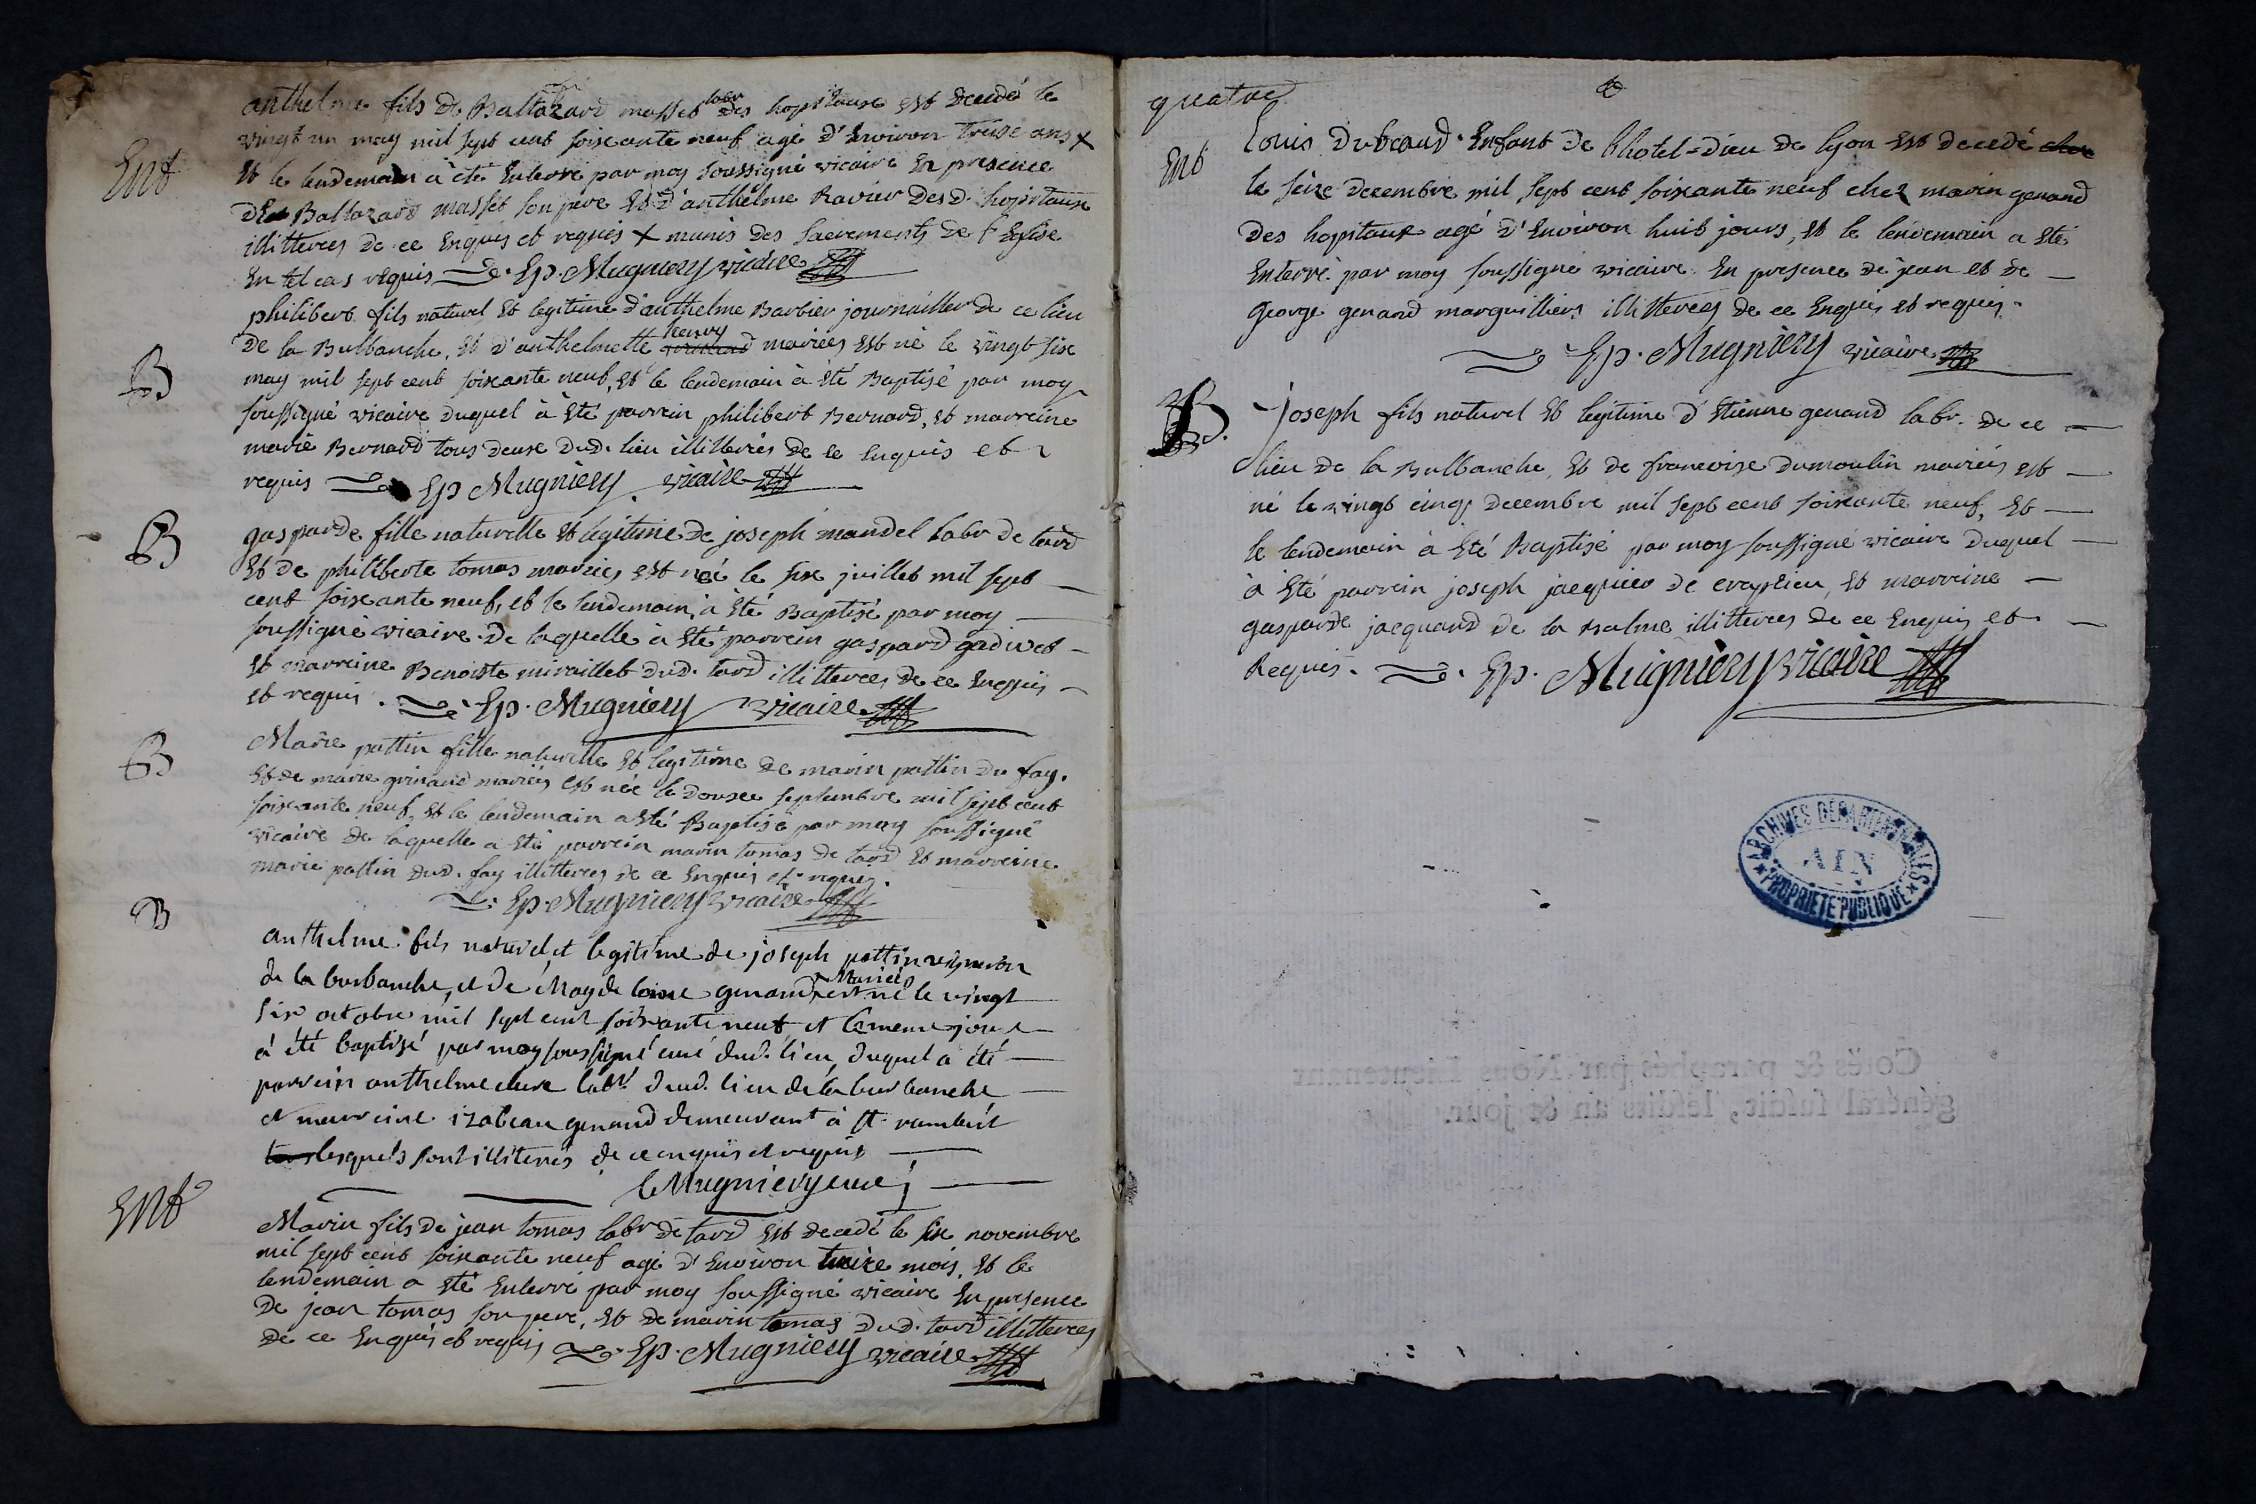 anthelme fils de Baltazard masset labr des hopitaux est decedé le
vingt un may mil sept cent soixante neuf agé d'Environ treise ans X
Et le lendemain à été Enterré par moy soussigné vicaire En presence
de Baltazard masset son pere Et d'anthelme Ravier desd. hopitaux
illitterees de ce Enquis et requis X munis des sacrements de l'Eglise
En tel cas requis Ep. Mugniery vicaire
Ent
philibert fils naturel Et legitime d'anthelme Barbier journailler de ce lieu
De la Burbanche, Et d'anthelmette mariées Est né le vingt six
may mil sept cent soixante neuf, Et le lendemain à Eté Baptisé par moy
soussigné vicaire duquel à Eté parrein philibert Bernard, Et marreine
marie Bernard tous deux dud. lieu illitterées de ce Enquis et
requis Ep Mugniery vicaire
B
gasparde fille naturelle Et legitime de joseph mandel labr de tard
Et de philiberte tomas mariées Est née le six juillet mil sept
cent soixante neuf, et le lendemain à Eté Baptisé par moy
soussigné vicaire de laquelle à Eté parrein gaspard gadivet
Et marreine Benoiste miraillet dud. tard illitterees de ce Enquis
Et requis. Ep. Mugniery vicaire
B
Marie pattin fille naturelle Et legitime de marin pattin du fay.
Et de marie grinand mariées est née le douse septembre mil sept cent
soixante neuf, Et le lendemain a Eté Baptisé par moy soussigné
vicaire de laquelle a Eté parrein marin tomas de tard Et marreine
marie pattin dud. fay illitterees de ce Enquis et requis.
Ep. Mugniery vicaire
B
anthelme fils naturel et legitime de joseph pattin vigneron
de la burbanche, et de Magdelaine genand Mariés est né le vingt
six octobre mil sept cent soixante neuf et le meme jour
a été baptisé par moy soussigné curé dud. lieu, duquel a été
parrein anthelme labr dud. lieu de la burbanche
et marreine izabeau genand demeurant à St. rambert
lesquels sont illiterés de ce enquis et requis
Mugniery curé
B
Marin fils de jean tomas labr de tard Est decedé le six novembre
mil sept cent soixante neuf agé d'Environ treize mois, Et le
lendemain a Eté Enterré par moy soussigné vicaire En presence
De jean tomas son pere, Et de marin tomas dud. tard illitterees
de ce Enquis et requis Ep. Mugniery vicaire
Ent
quatre
Louis Dubeaud Enfant de l'hotel=Dieu de lyon Est decedé
le seize decembre mil sept cent soixante neuf chez marin genand
des hopitaux agé d'Environ huit jours, Et le lendemain a Eté
Enterré par moy soussigné vicaire En presence de jean et de
George genand marguilliers illitterees de ce Enquis et requis.
Ep. Mugniery vicaire
Ent
joseph fils naturel Et legitime d'Etienne genand labr. de ce
lieu de la Burbanche, Et de francoise dumoulin mariées est
né le vingt cinq decembre mil sept cent soixante neuf, Et
le lendemain à Eté Baptisé par moy soussigné vicaire duquel
à Eté parrein joseph jacquier de craptieu, Et marreine
gasparde jacquand de la Balme illitterees de ce Enquis et
Requis. Ep. Mugniery vicaire
B.
ARCHIVES DEPARTEMENTALES
AIN
PROPRIETE PUBLIQUE
Cotés & paraphés par Nous Lieutenant
général susdit, lesdits an & jour.